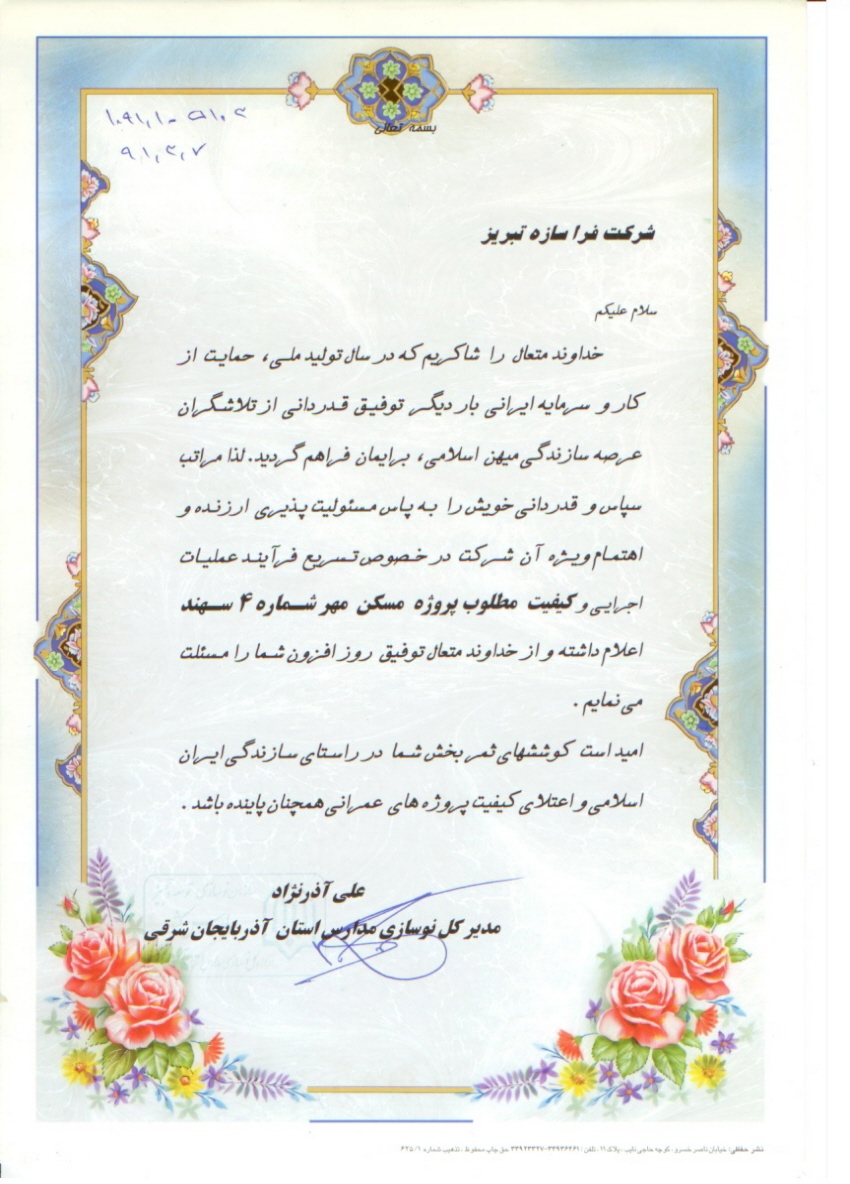 بسمه تعالی
۹۱,۳,۷
شرکت فرا سازه تبریز
سلام علیکم
خداوند متعال را شاکریم که در سال تولید ملی، حمایت از
کار و سرمایه ایرانی بار دیگر توفیق قدردانی از تلاشگران
عرصه سازندگی میهن اسلامی، برایمان فراهم گردید. لذا مراتب
سپاس و قدردانی خویش را به پاس مسئولیت پذیری ارزنده و
اهتمام ویژه آن شرکت در خصوص تسریع فرآیند عملیات
اجرایی و کیفیت مطلوب پروژه مسکن مهر شماره ۴ سهند
اعلام داشته و از خداوند متعال توفیق روز افزون شما را مسئلت
می نمایم .
امید است کوششهای ثمر بخش شما در راستای سازندگی ایران
اسلامی و اعتلای کیفیت پروژه های عمرانی همچنان پاینده باشد .
علی آذرنژاد
مدیر کل نوسازی مدارس استان آذربایجان شرقی
نشر حفظی: خیابان ناصر خسرو، کوچه حاجی نایب، پلاک ۱۱، تلفن: ۳۳۹۳۶۳۶۱-۳۳۹۲۳۳۲۷ حق چاپ محفوظ، تذهیب شماره ۶۲۵/۱